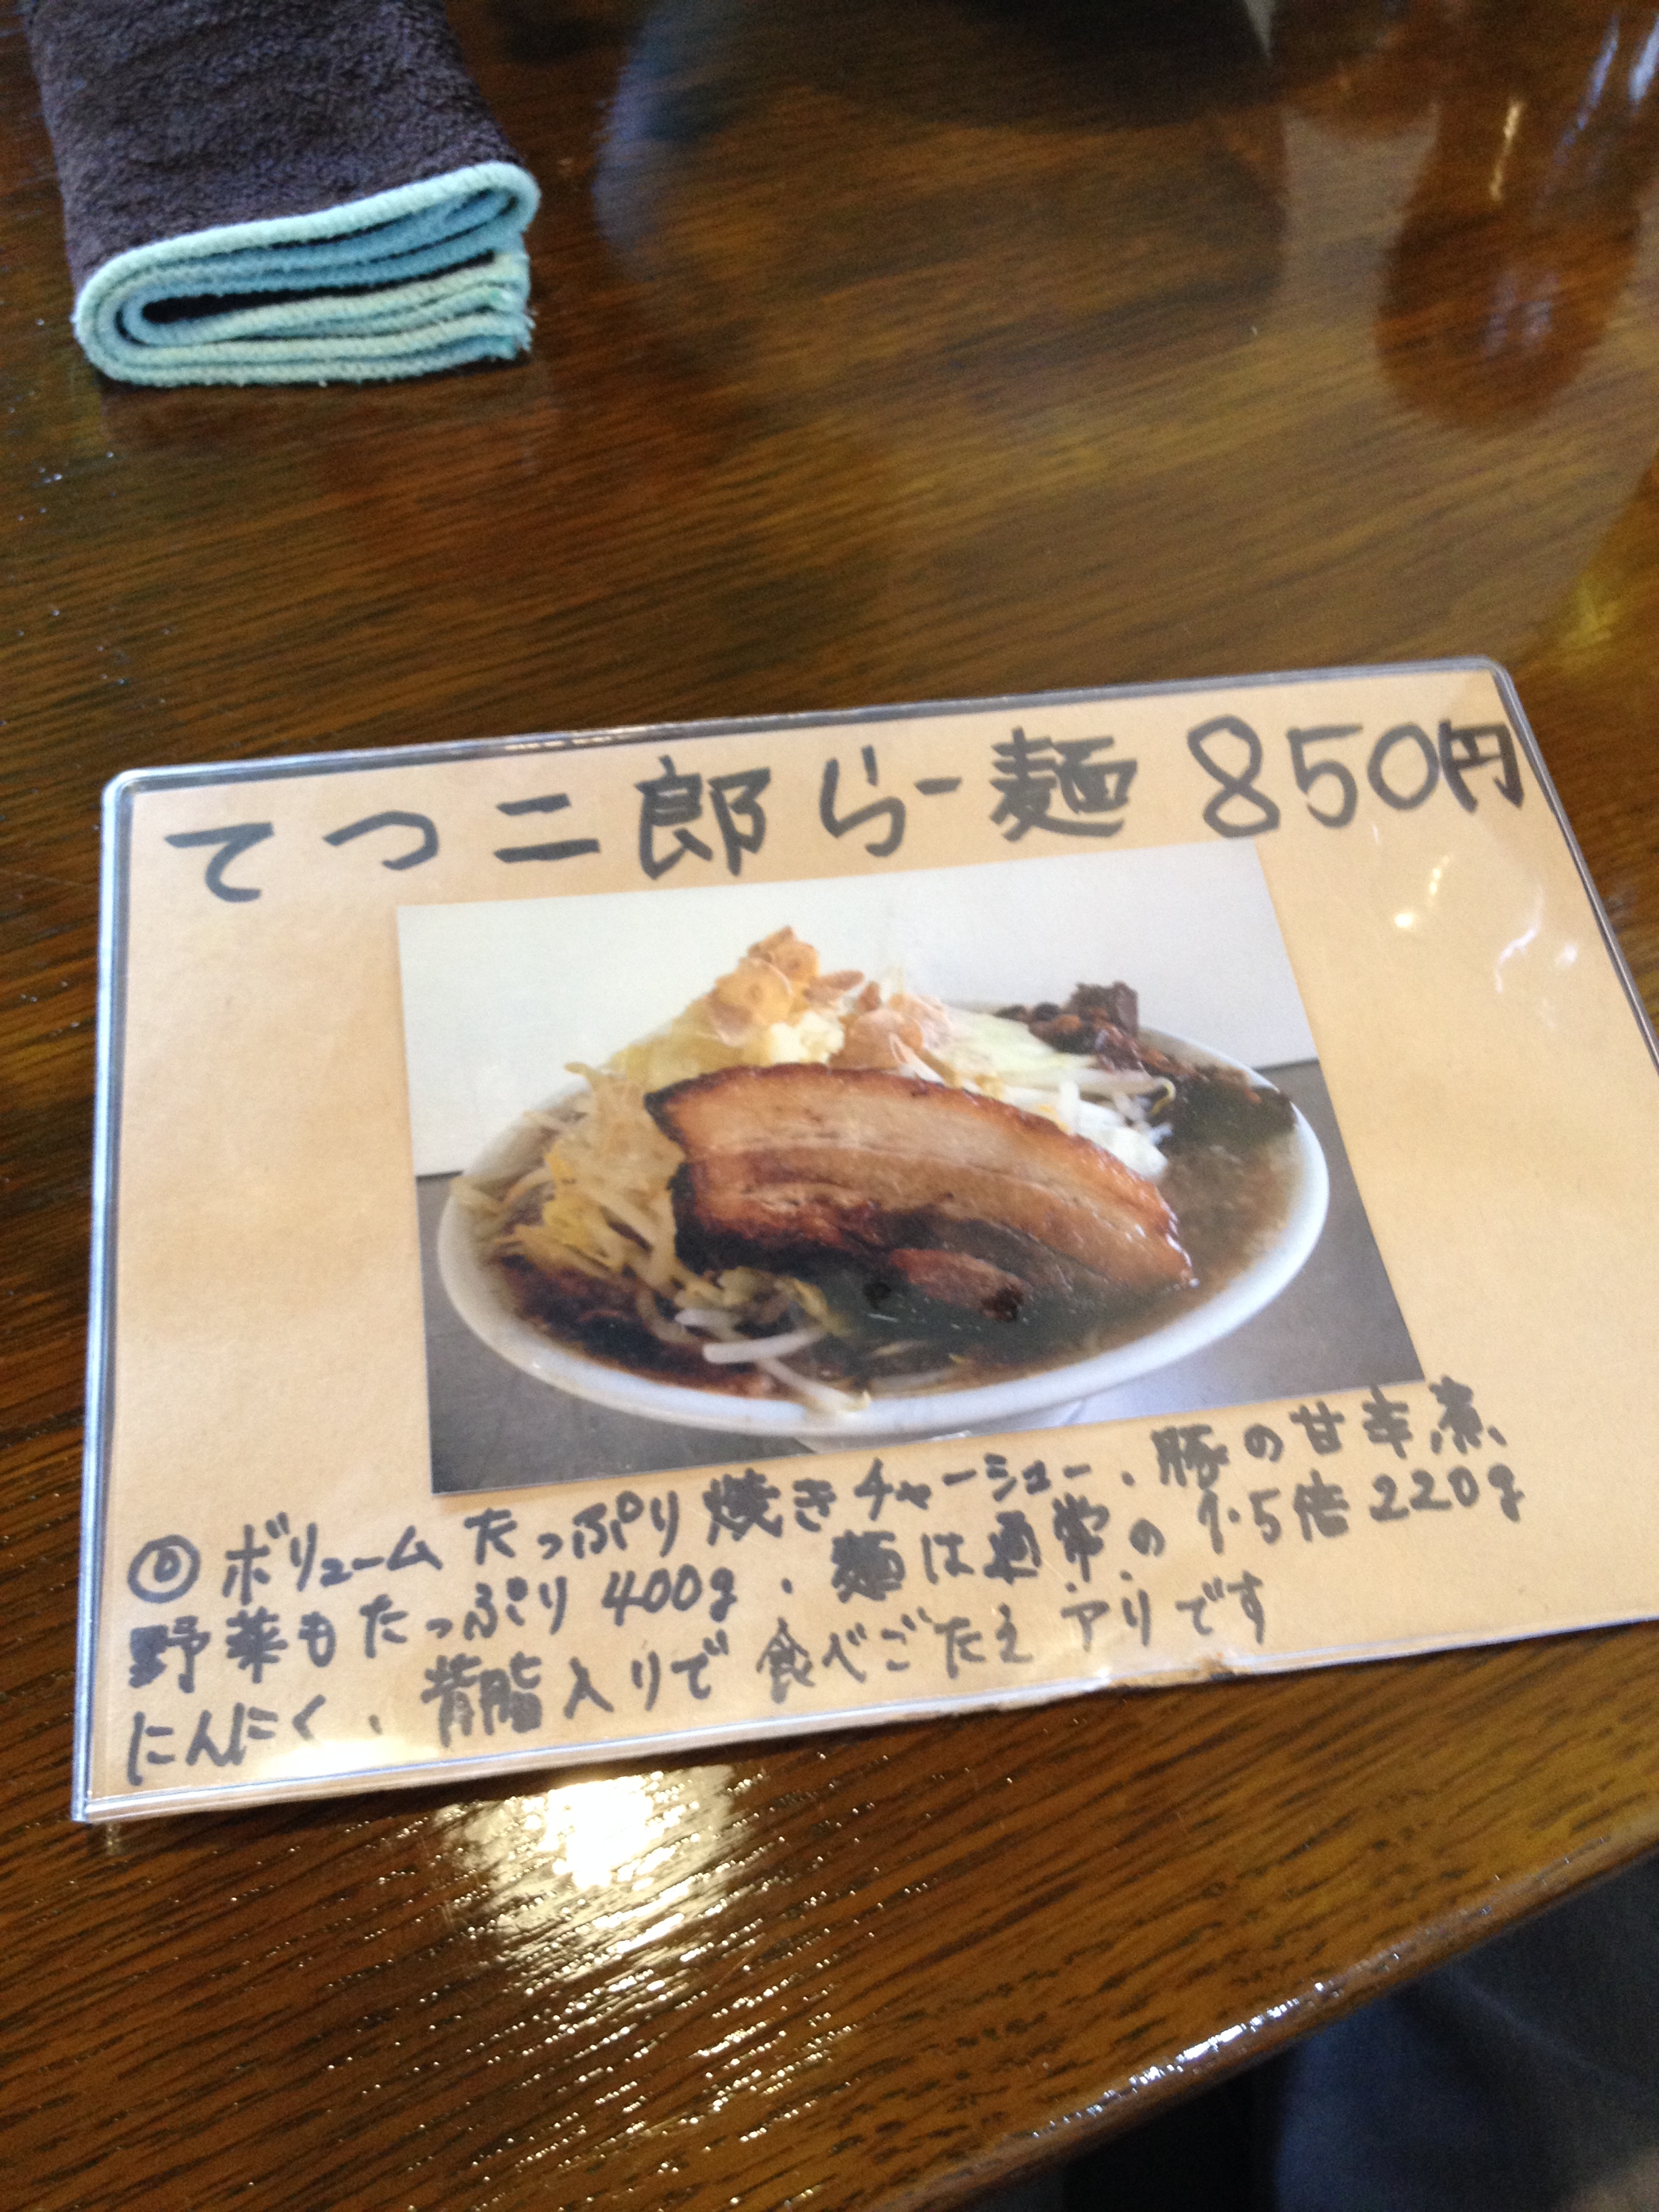 てつ二郎らー麺 850円
◎ボリュームたっぷり焼きチャーシュー、豚の甘辛煮
野菜もたっぷり400g、麺は通常の1.5倍220g
にんにく、背脂入りで食べごたえアリです